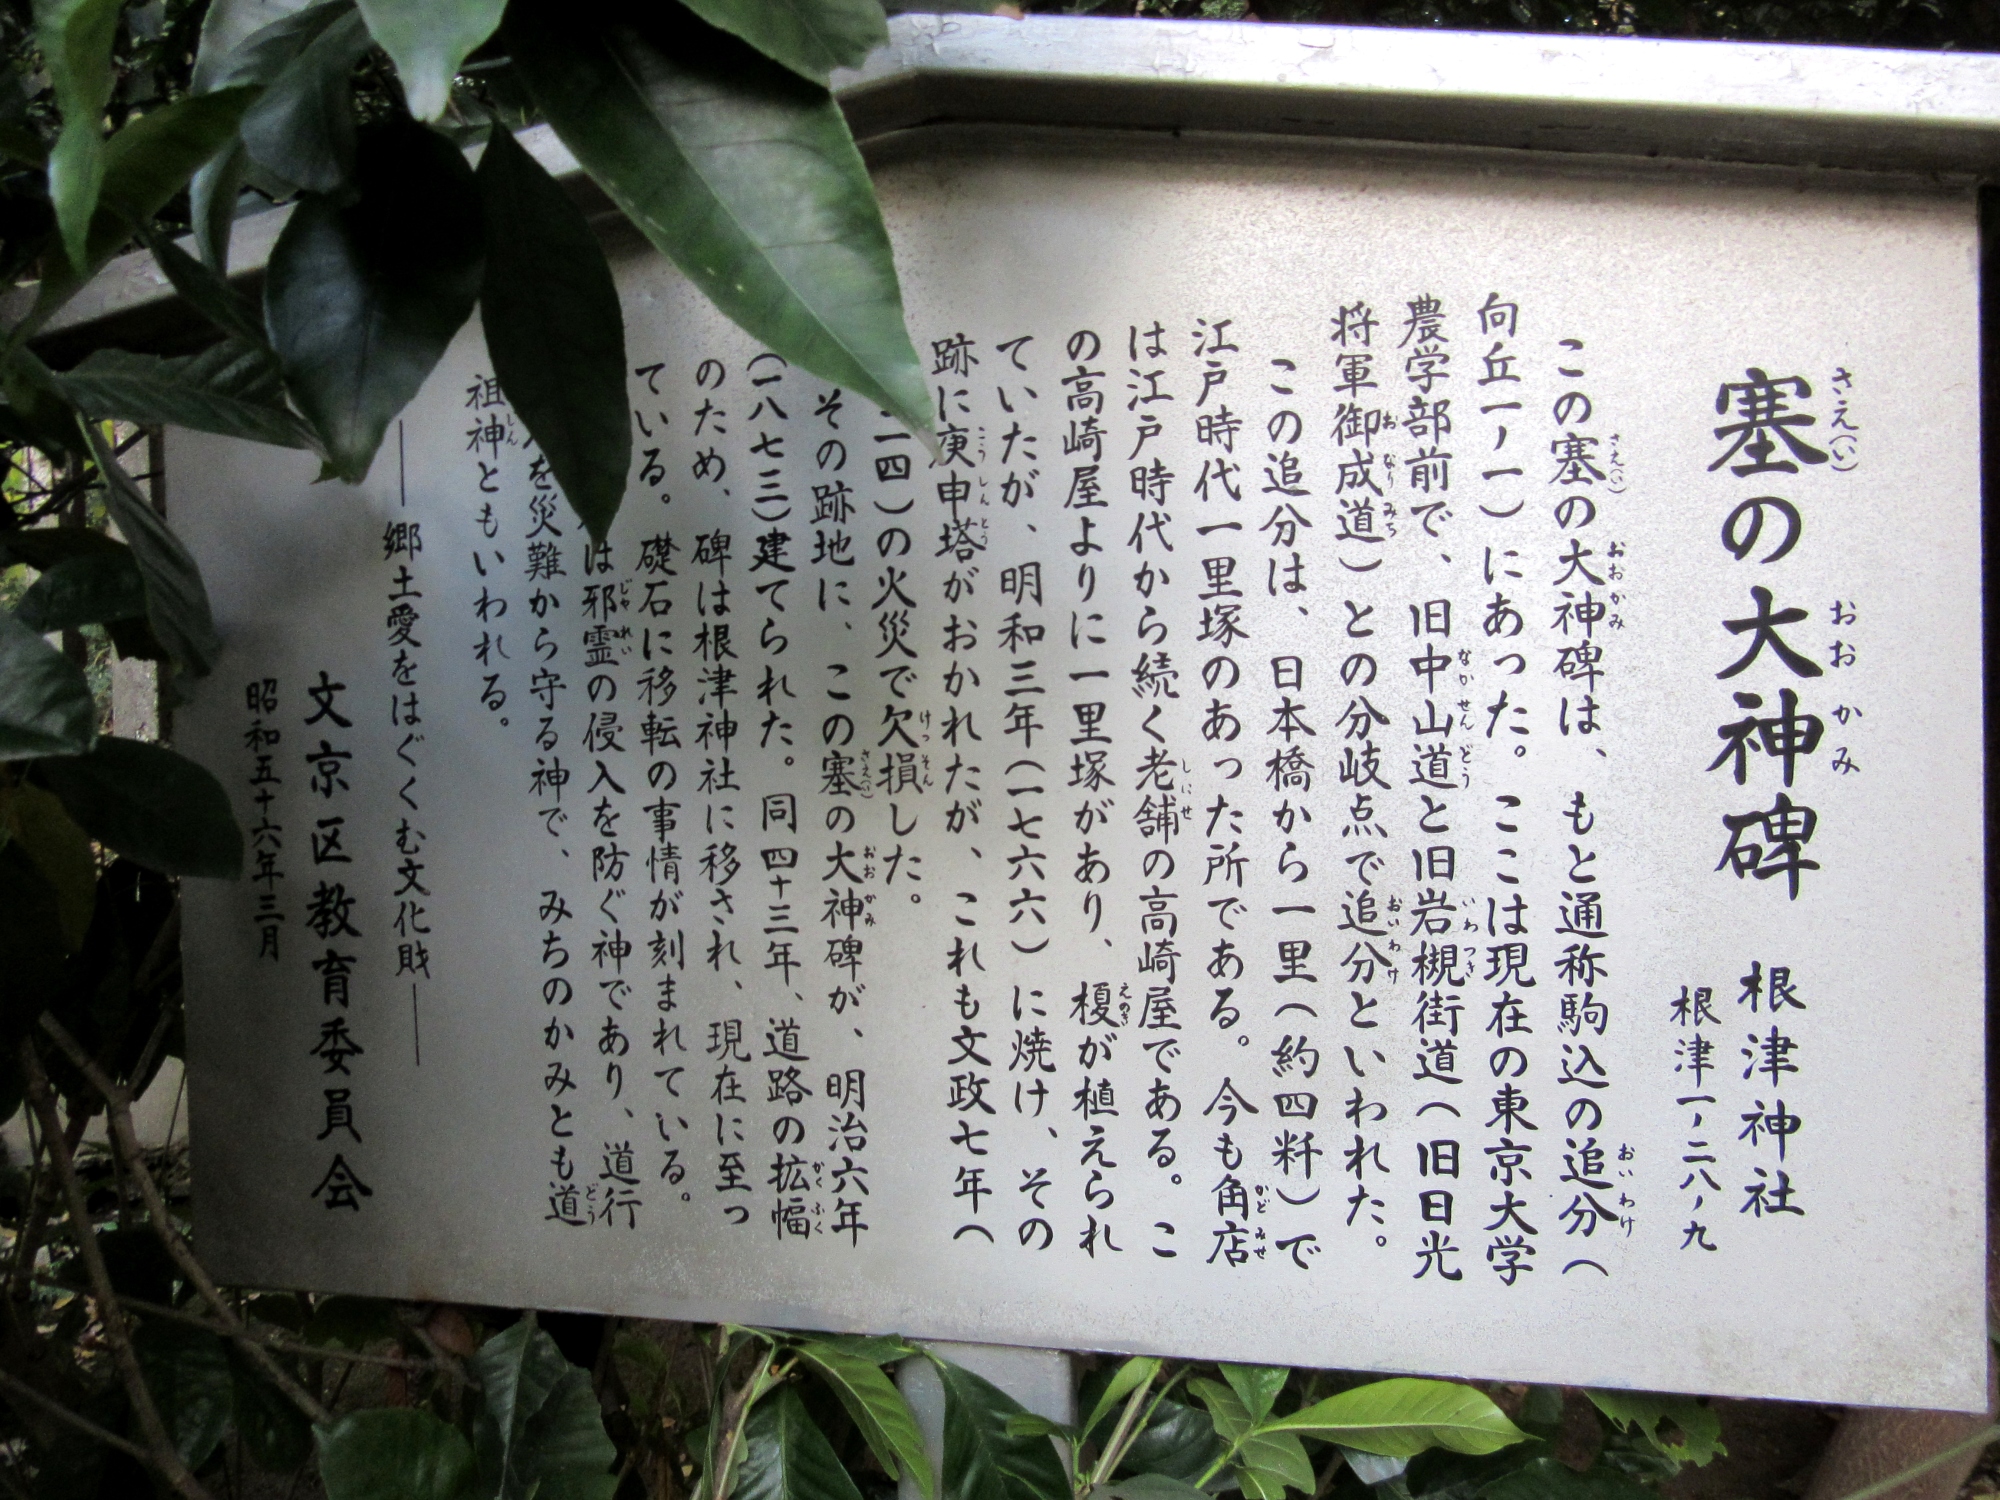 塞の大神碑　根津神社
根津一ノ二八ノ九
この塞の大神碑は、もと通称駒込の追分（
向丘一ノ一）にあった。ここは現在の東京大学
農学部前で、旧中山道と旧岩槻街道（旧日光
将軍御成道）との分岐点で追分といわれた。
この追分は、日本橋から一里（約四粁）で
江戸時代一里塚のあった所である。今も角店
は江戸時代から続く老舗の高崎屋である。こ
の高崎屋よりに一里塚があり、榎が植えられ
ていたが、明和三年（一七六六）に焼け、その
跡に庚申塔がおかれたが、これも文政七年（
二四）の火災で欠損した。
その跡地に、この塞の大神碑が、明治六年
（一八七三）建てられた。同四十三年、道路の拡幅
のため、碑は根津神社に移され、現在に至っ
ている。礎石に移転の事情が刻まれている。
は邪霊の侵入を防ぐ神であり、道行
を災難から守る神で、みちのかみとも道
祖神ともいわれる。
――郷土愛をはぐくむ文化財――
文京区教育委員会
昭和五十六年三月